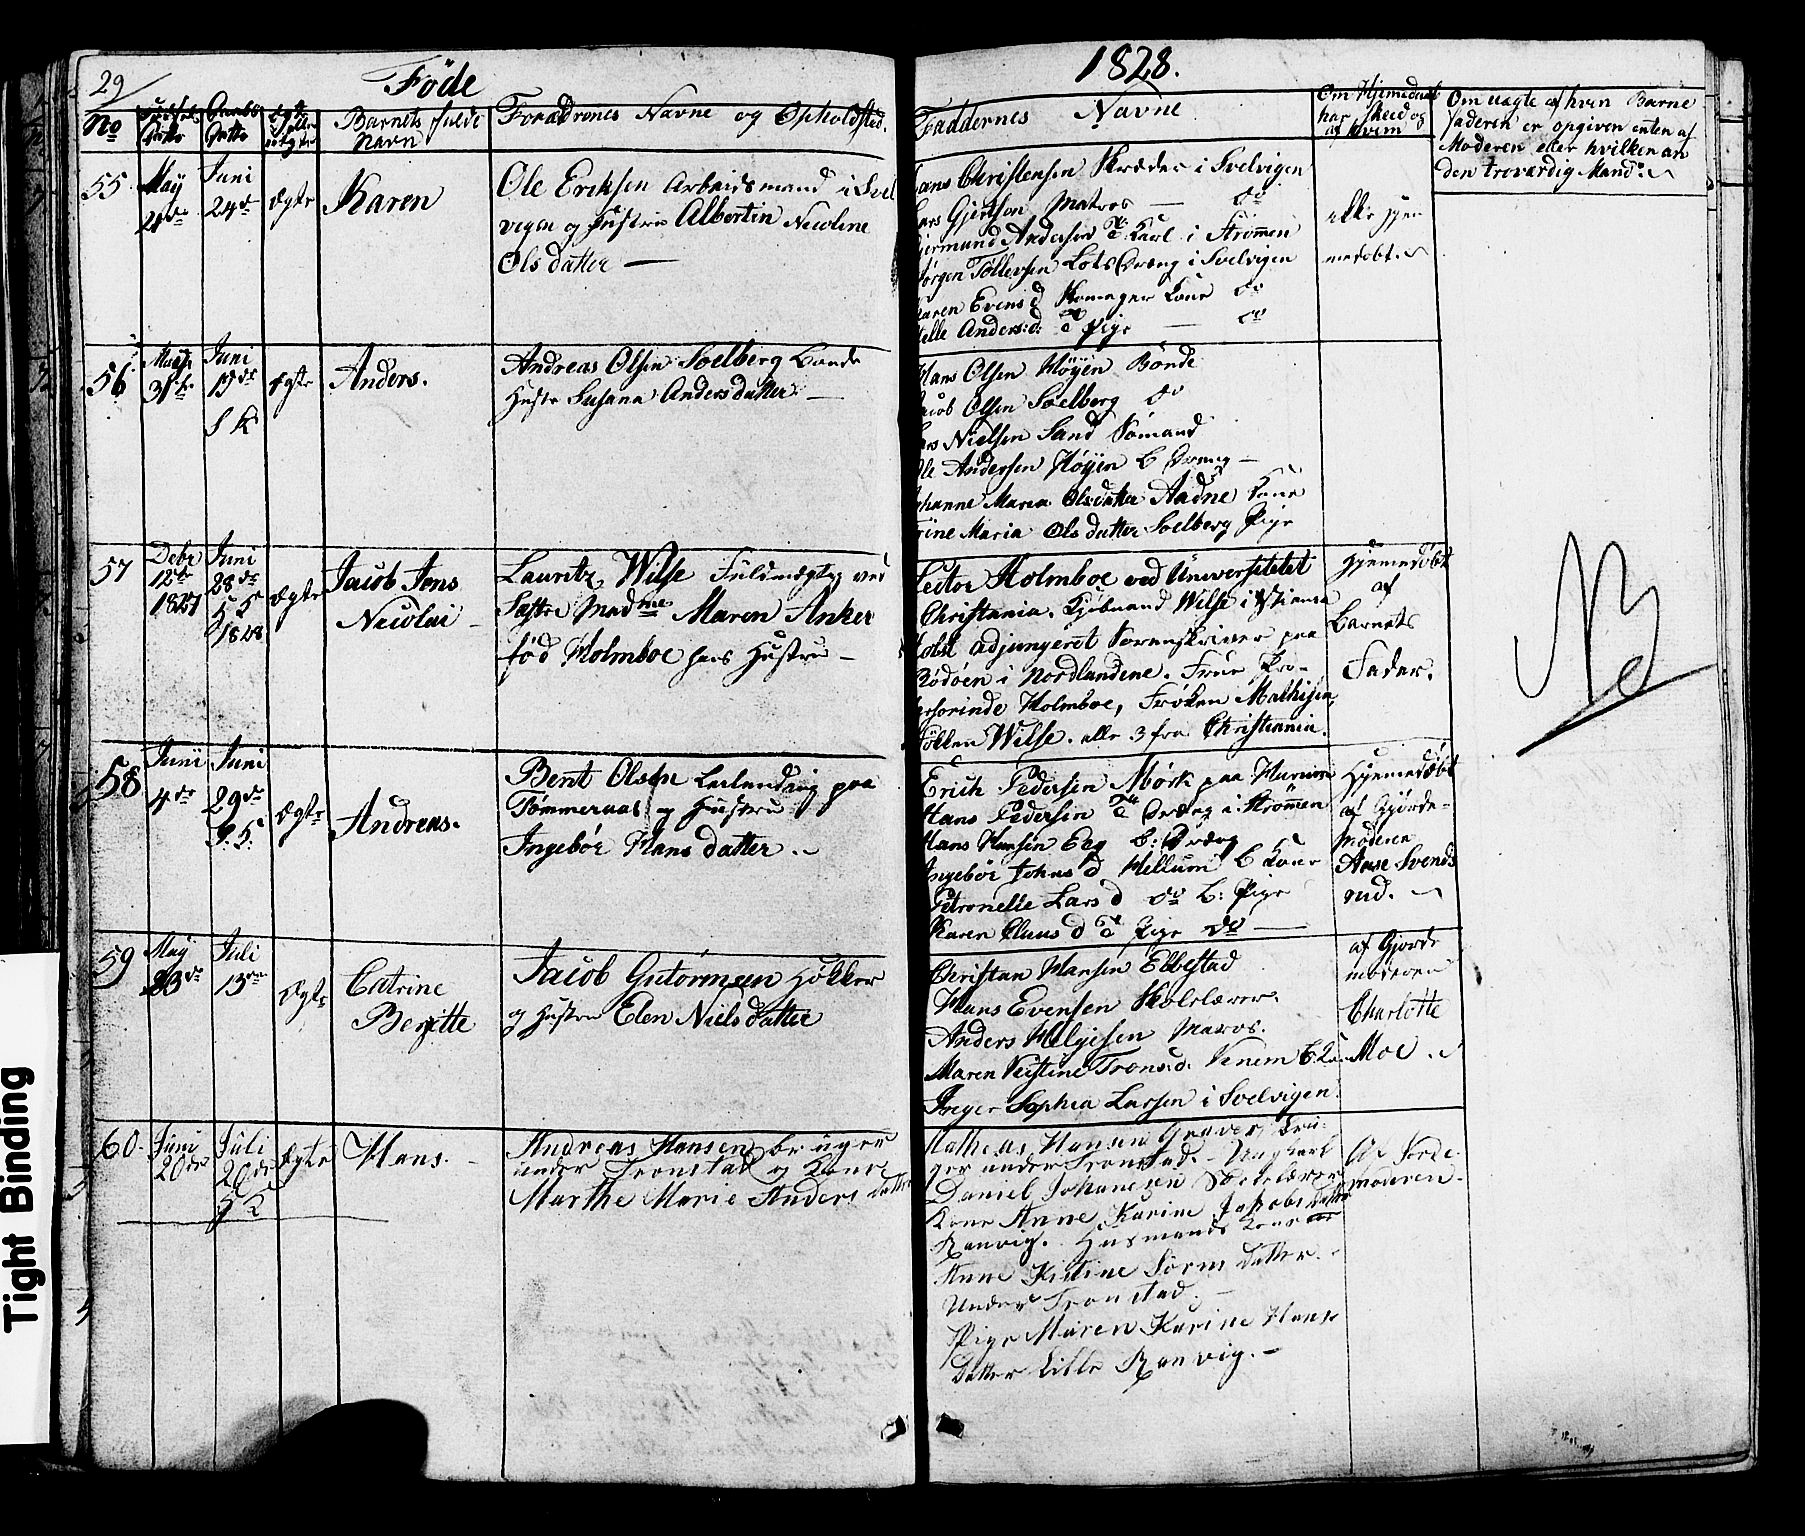 29
Föde
1828.
No
Daabs Datto
Ægte eller uægte
Barnets fulde Navn
Forældrenes Navne og Opholdsted.
Faddernes Navne
Om Hjemedaab har skeed og af hvem
Om uægte af hvem Barne
faderen er opgiven enten af
Moderen eller hvilken an
den troværdig Mand.
55
May
Juni
24de
Ægte
Karen
Ole Eriksen Arbeidsmand i Svel
vigen og Hustru Albertin Nicoline
Olsdatter —
Hans Christensen Skræder i Svelvigen
Lars Gjertsen Matros — do
Andersen Karl i Strömmen
Jörgen Tollevsen Lots Dreng i Svelvigen
Karen Evens d Kone do
Anders: d: Pige — do
ikke hjem
medöbt.
56
May
31te
Juni
15de
S K
Ægte
Anders.
Andreas Olsen Soelberg Bonde
Hustr Susana Andersdatter —
Hans Olsen Höyen Bonde
Jacob Olsen Soelberg do
Lars Nielsen Sand Sömand
Ole Andersen Höyen B Dreng —
Johanne Maria Olsdatter Aadne Kone
Trine Maria Olsdatter Soelberg Pige
57
Debr
12te
1827
Juni
28de
H S
1828
Ægte
Jacob Jens
Nicolai —
Lauritz Wilse Fuldmægtig ved
Madme Maren Anker
föd Holmboe hans Hustru —
Lector Holmboe ved Universitetet
Christiania. Kjöbmand Wilse i
Holst adjungeret Sorenskriver paa
Rödöen i Nordlandene. Frue Pro-
fessorinde Holmboe, Fröken Mathisen,
Fröken Wilse. alle 3 fra Christiania.
Hjemedöbt
af
Barnets
Fader.
NB
58
Junii
4de
Juni
29de
S. S.
Ægte
Andreas.
Bent Olsen Leilending paa
Tömmeraas og Hustru
Ingebör Hansdatter. —
Erich Pedersen Mörk paa Hurum
Hans Pedersen Dreng i Strömmen
Hans Hansen Eeg B: Dreng
Ingebör Johns d Hellum B Kone
Petronelle Lars d do B: Pige
Karen Claus d Pige do —
Hjemedöbt
af Gjorde-
moderen
Anne Svends
rud. —
59
May
23de
Juli
13de
Ægte
Catrine
Beritte
Jacob Gutormsen Hökker
og Hustru Elen Nielsdatter
Christian Hansen Ebbestad
Hans Evensen Skolelærer.
Anders Helgesen Matros.
Maren Kistine Trons:d. Venem
Inger Sophia Larsen i Svelvigen.
af Gjorde
moderen
Charlotte
Moe.
60.
Juni
20de
Juli
20de
S K
Ægte
Hans. —
Andreas Hansen bruger
under Tronstad og Kone
Marthe Marie Andersdatter
Matheas Hansen Graver, bru-
ger under Tronstad. — Ungkarl
Daniel Johansen Skolelærer
Kone Anne Karine Jakobsdatter
Ranvig. Husmands Kone
Anne Kistine Sörensdatter.
Under Tronstad. —
Pige Maren Karine Hans
Datter Lille Ranvig. —
Af Jorde
moderen.
Tight Binding